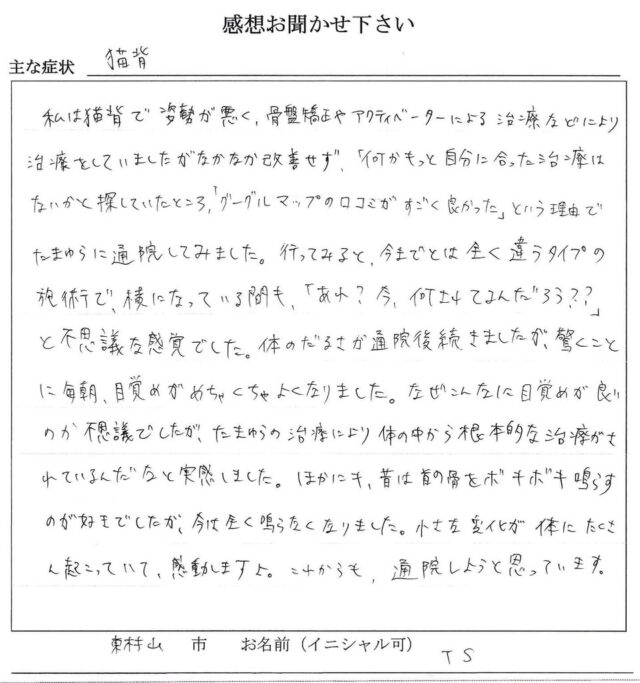 感想お聞かせ下さい
主な症状 猫背
私は猫背で姿勢が悪く、骨盤矯正やアクティベーターによる治療などにより
治療をしていましたがなかなか改善せず、「何かもっと自分に合った治療は
ないかと探していたところ、「グーグルマップの口コミがすごく良かった」という理由で
たまゆらに通院してみました。行ってみると、今までとは全く違うタイプの
施術で、横になっている間も、「あれ?今、何されてるんだろう??」
と不思議な感覚でした。体のだるさが通院後続きましたが、驚くこと
に毎朝、目覚めがめちゃくちゃよくなりました。なぜこんなに目覚めが良い
のか不思議でしたが、たまゆらの治療により体の中から根本的な治療がさ
れているんだなと実感しました。ほかにも、昔は首の骨をボキボキ鳴らす
のが好きでしたが、今は全く鳴らなくなりました。小さな変化が体にたくさ
ん起こっていて、感動しますよ。これからも、通院しようと思っています。
東村山 市 お名前(イニシャル可) T S